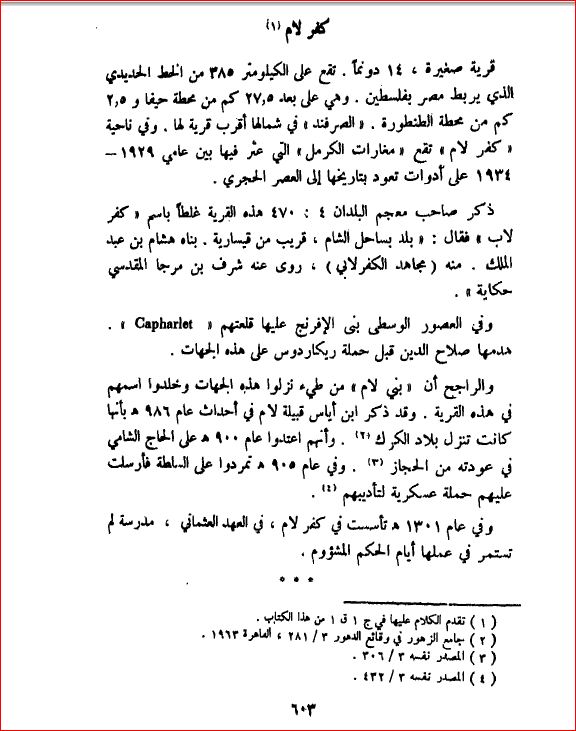 كفر لام (١)
قرية صغيرة ، ١٤ دونماً . تقع على الكيلومتر ٣٨٥ من الخط الحديدي
الذي يربط مصر بفلسطين . وهي على بعد ٢٧,٥ كم من محطة حيفا و ٢,٥
كم من محطة الطنطورة . « الصرفند » في شمالها أقرب قرية لها . وفي ناحية
« كفر لام » تقع « مغارات الكرمل » التي عثر فيها بين عامي ١٩٢٩ –
١٩٣٤ على أدوات تعود بتاريخها إلى العصر الحجري .
ذكر صاحب معجم البلدان ٤ : ٤٧٠ هذه القرية غلطاً باسم « كفر
لاب » فقال : « بلد بساحل الشام ، قريب من قيسارية . بناه هشام بن عبد
الملك . منه ( مجاهد الكفرلابي ) ، روى عنه شرف بن مرجا المقدسي
حكاية » .
وفي العصور الوسطى بنى الإفرنج عليها قلعتهم « Capharlet » .
هدمها صلاح الدين قبل حملة ريكاردوس على هذه الجهات .
والراجح أن « بني لام » من طيء نزلوا هذه الجهات وخلدوا اسمهم
في هذه القرية . وقد ذكر ابن أياس قبيلة لام في أحداث عام ٩٨٦ ه بأنها
كانت تنزل بلاد الكرك (٢) . وأنهم اعتدوا عام ٩٠٠ ه على الحاج الشامي
في عودته من الحجاز (٣) . وفي عام ٩٠٥ ه تمردوا على السلطة فأرسلت
عليهم حملة عسكرية لتأديبهم (٤) .
وفي عام ١٣٠١ ه تأسست في كفر لام ، في العهد العثماني ، مدرسة لم
تستمر في عملها أيام الحكم المشؤوم .
* * *
( ١ ) تقدم الكلام عليها في ج ١ ق ١ من هذا الكتاب .
( ٢ ) جامع الزهور في وقائع الدهور ٣ / ٢٨١ ، القاهرة ١٩٦٣ .
( ٣ ) المصدر نفسه ٣ / ٣٠٦ .
( ٤ ) المصدر نفسه ٣ / ٤٣٢ .
٦٠٣